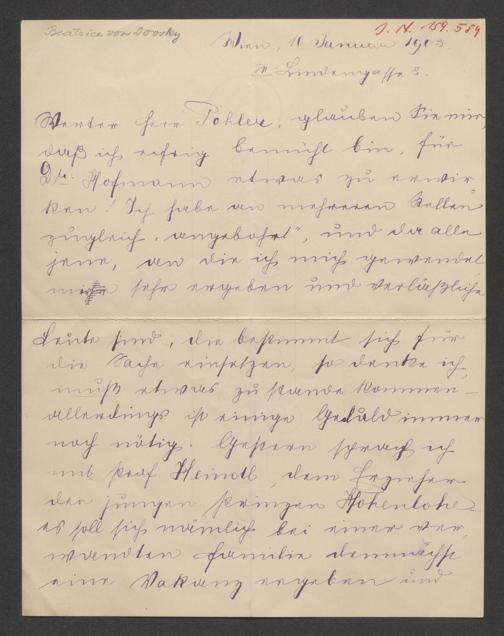 Beatrice von Dovsky
J. N. 159.584
Wien, 10 Januar 1903.
Lindengasse 3.
Werter Herr Pohler, glauben Sie mir,
daß ich eifrig bemüht bin, für
Dr. Hofmann etwas zu erwir-
ken! Ich habe an mehreren Stellen
zugleich „angebohrt", und da alle
jene, an die ich mich gewendet
mir sehr ergeben und verläßliche
Leute sind, die bestimmt sich für
die Sache einsetzen, so denke ich,
muß etwas zu stande kommen –
allerdings ist einige Geduld immer
noch nötig. Gestern sprach ich
mit Prof Heindl, dem Erzieher
der jungen Prinzen Hohenlohe
es soll sich nämlich bei einer ver-
wandten Familie demnächst
eine Vakanz ergeben und